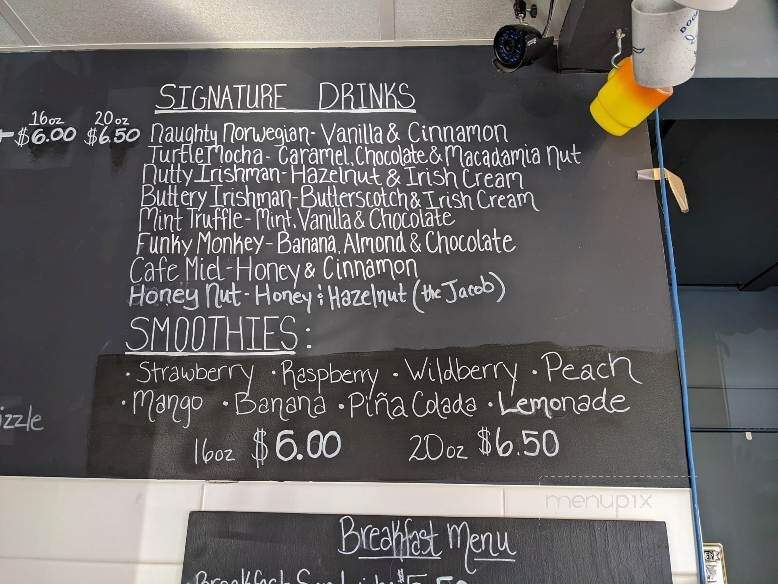 SIGNATURE DRINKS
16oz 20oz
$6.00 $6.50
Naughty Norwegian - Vanilla & Cinnamon
Turtle Mocha - Caramel, Chocolate & Macadamia Nut
Nutty Irishman - Hazelnut & Irish Cream
Buttery Irishman - Butterscotch & Irish Cream
Mint Truffle - Mint, Vanilla & Chocolate
Funky Monkey - Banana, Almond & Chocolate
Cafe Miel - Honey & Cinnamon
Honey Nut - Honey & Hazelnut (the Jacob)
SMOOTHIES:
• Strawberry • Raspberry • Wildberry • Peach
• Mango • Banana • Piña Colada • Lemonade
izzle
16oz $6.00 20oz $6.50
menupix
Breakfast Menu